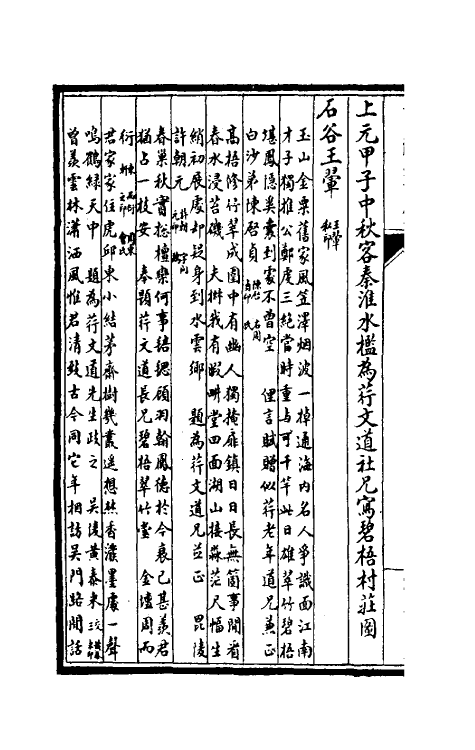 上元甲子中秋客秦淮水檻為荇文道社兄寫碧梧村莊圖
石谷王翬 王翬 私印
玉山金粟舊家風笠澤烟波一棹通海內名人爭識面江南
才子獨推公鄭虔三絕當時重與可千竿此日雄翠竹碧梧
堪鳳隱奚囊到處不曾空 俚言賦贈似荇老年道兄兼正
白沙弟陳啓貞
高梧修竹翠成圍中有幽人獨掩扉鎮日日長無箇事閒看
春水浸苔磯 夫椒我有
堂四面湖山接淼茫尺幅生
綃初展處却疑身到水雲鄉 題為荇文道兄並正 毘陵
許朝元
春巢秋實總檀欒何事
顧羽翰鳳德於今衰已甚羨君
猶占一枝安 奉題荇文道長兄碧梧翠竹堂 金壇周而
衍
君家家住虎邱東小結茅齋樹幾叢遥想林香濃墨處一聲
鳴鶴綠天中 題為荇文道先生政之 吳陵黃泰來
曾羨雲林瀟洒風惟君清致古今同它年相訪吳門路閒話